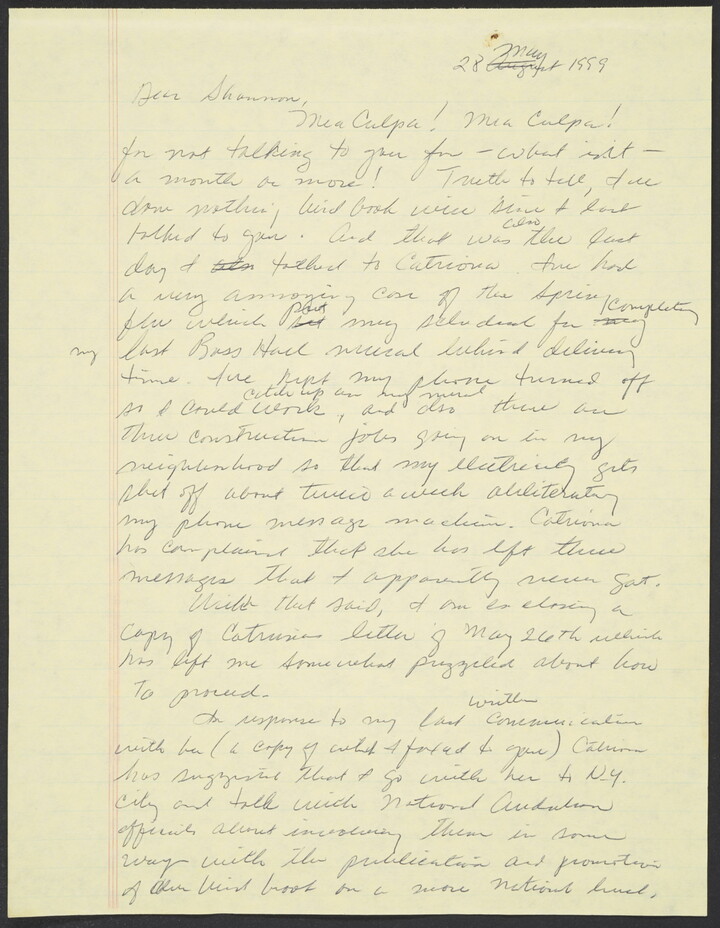 May
28 August 1999
Dear Shannon,
Mea Culpa! Mea Culpa!
for not talking to you for – what is it –
a month or more! Truth to tell, I've
done nothing bird book wise since I last
also
talked to you. And that was the last
day I also talked to Catriona. I've had
a very annoying case of the Spring
put completing
flu which set my schedule for my
my last Bass Hall mural behind delivery
time. I've kept my phone turned off
catch up on my mural
so I could work, and also there are
three construction jobs going on in my
neighborhood so that my electricity gets
shut off about twice a week obliterating
my phone message machine. Catriona
has complained that she has left three
messages that I apparently never got.
With that said, I am enclosing a
copy of Catrionas letter of May 26th which
has left me somewhat puzzled about how
to proceed.
written
In response to my last communication
with her (a copy of which I faxed to you) Catriona
has suggested that I go with her to N.Y.
City and talk with National Audubon
officials about involving them in some
way with the publication and promotion
of our bird book on a more national level.